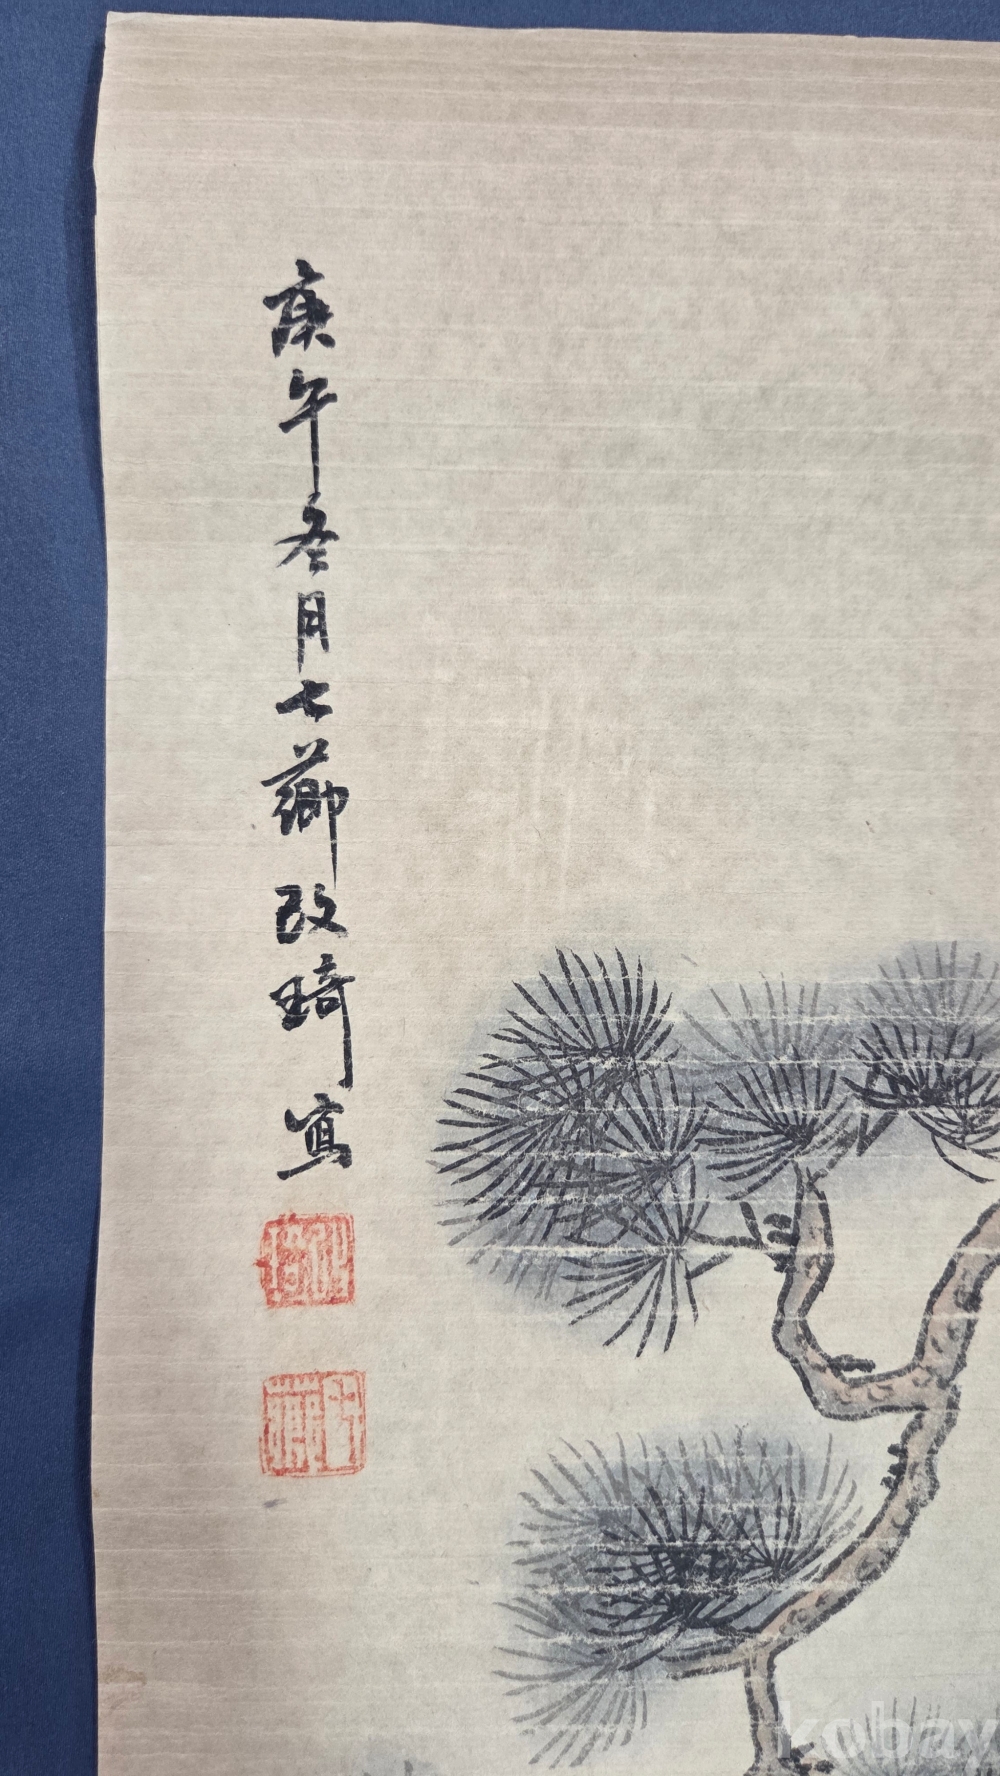 庚午冬月七薌改琦寫
七薌
kobay